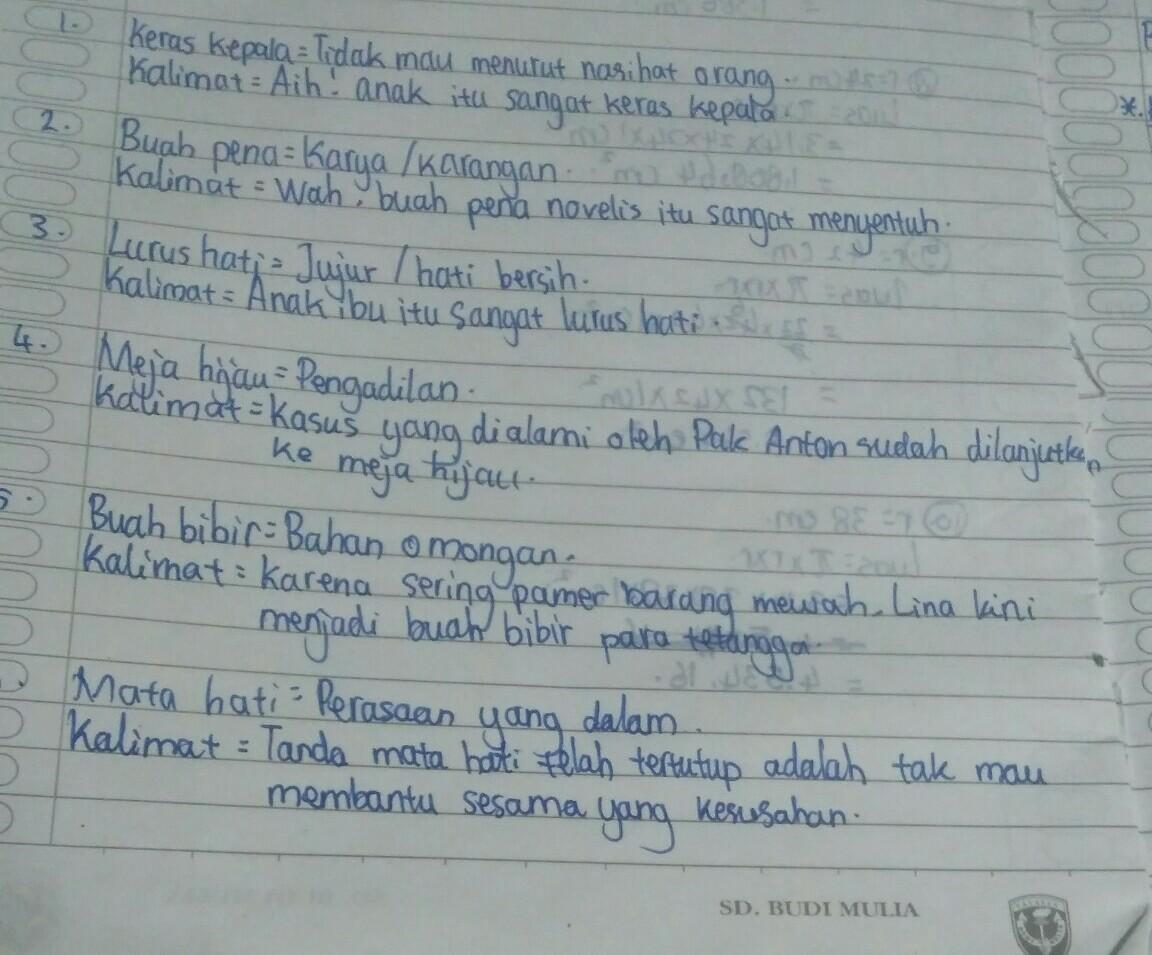 1. Keras kepala = Tidak mau menurut nasihat orang.
Kalimat = Aih! anak itu sangat keras kepala.
2. Buah pena = Karya / karangan.
Kalimat = Wah, buah pena novelis itu sangat menyentuh.
3. Lurus hati = Jujur / hati bersih.
Kalimat = Anak ibu itu sangat lurus hati.
4. Meja hijau = Pengadilan.
Kalimat = Kasus yang dialami oleh Pak Anton sudah dilanjutkan
ke meja hijau.
5. Buah bibir = Bahan omongan.
Kalimat = Karena sering pamer barang mewah. Lina kini
menjadi buah bibir para tetangga.
Mata hati = Perasaan yang dalam.
Kalimat = Tanda mata hati telah tertutup adalah tak mau
membantu sesama yang kesusahan.
SD. BUDI MULIA